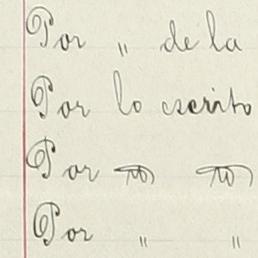 Por " de la
Por lo escrito
Por
Por " "